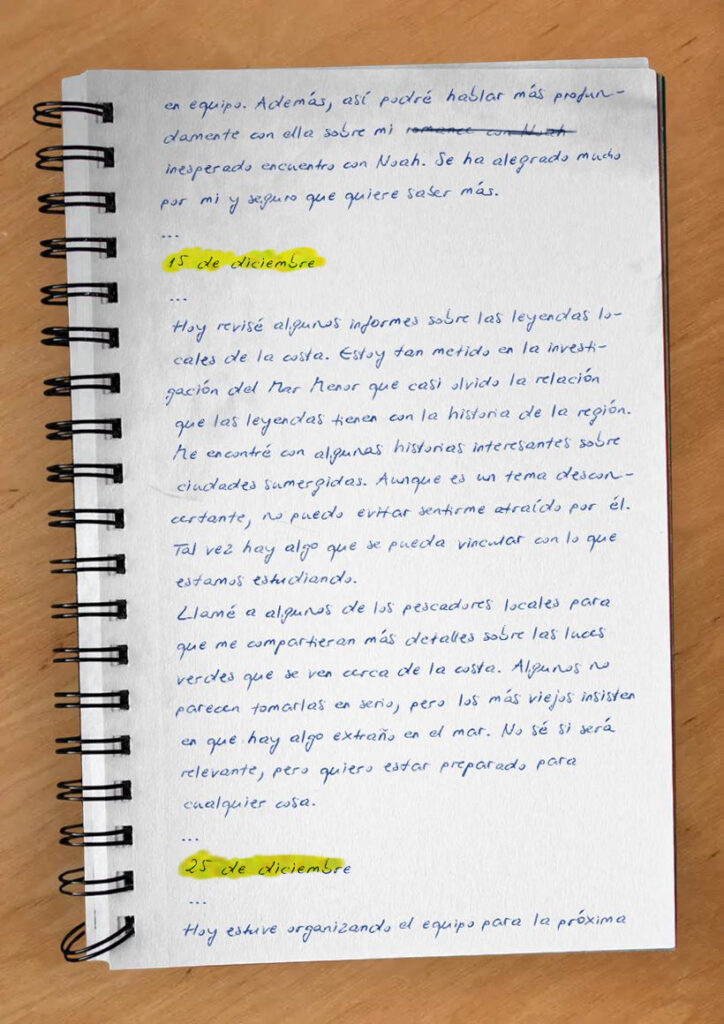 en equipo. Además, así podré hablar más profun-
damente con ella sobre mi romance con Noah
inesperado encuentro con Noah. Se ha alegrado mucho
por mi y seguro que quiere saber más.
...
15 de diciembre
...
Hoy revisé algunos informes sobre las leyendas lo-
cales de la costa. Estoy tan metido en la investi-
gación del Mar Menor que casi olvido la relación
que las leyendas tienen con la historia de la región.
Me encontré con algunas historias interesantes sobre
ciudades sumergidas. Aunque es un tema descon-
certante, no puedo evitar sentirme atraído por él.
Tal vez hay algo que se pueda vincular con lo que
estamos estudiando.
Llamé a algunos de los pescadores locales para
que me compartieran más detalles sobre las luces
verdes que se ven cerca de la costa. Algunos no
parecen tomarlas en serio, pero los más viejos insisten
en que hay algo extraño en el mar. No sé si será
relevante, pero quiero estar preparado para
cualquier cosa.
...
25 de diciembre
...
Hoy estuve organizando el equipo para la próxima